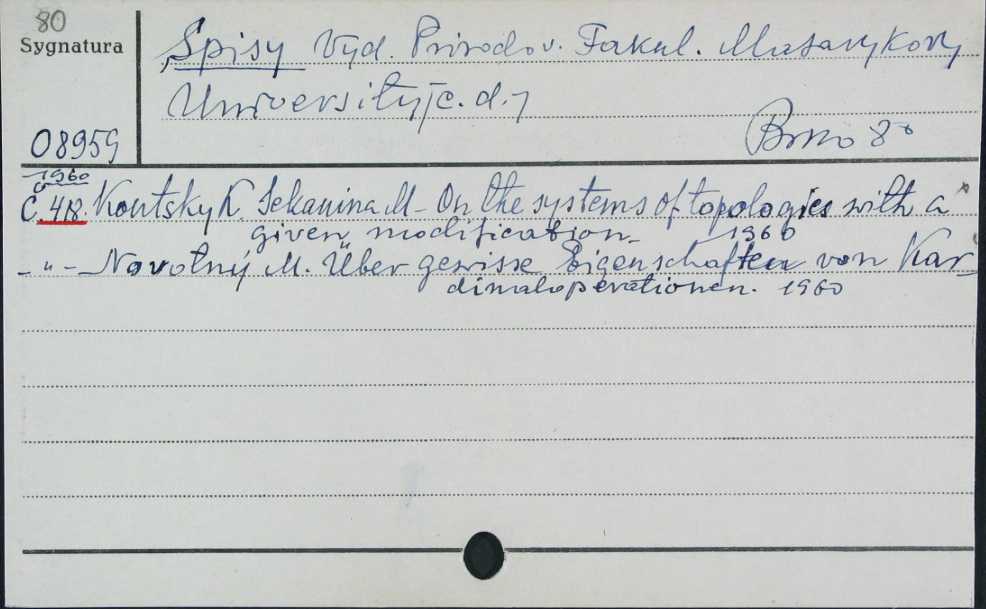 80
Sygnatura
08959
Spisy Vyd. Prirodov. Fakul. Masarykovy
University /c.d./
Brno 8°
1960
č. 418. Koutsky K. Sekanina M - On the systems of topologies with a
given modification. 1960
- " - Novotný M. Über gewisse Eigenschaften von Kar-
dinaloperationen. 1960